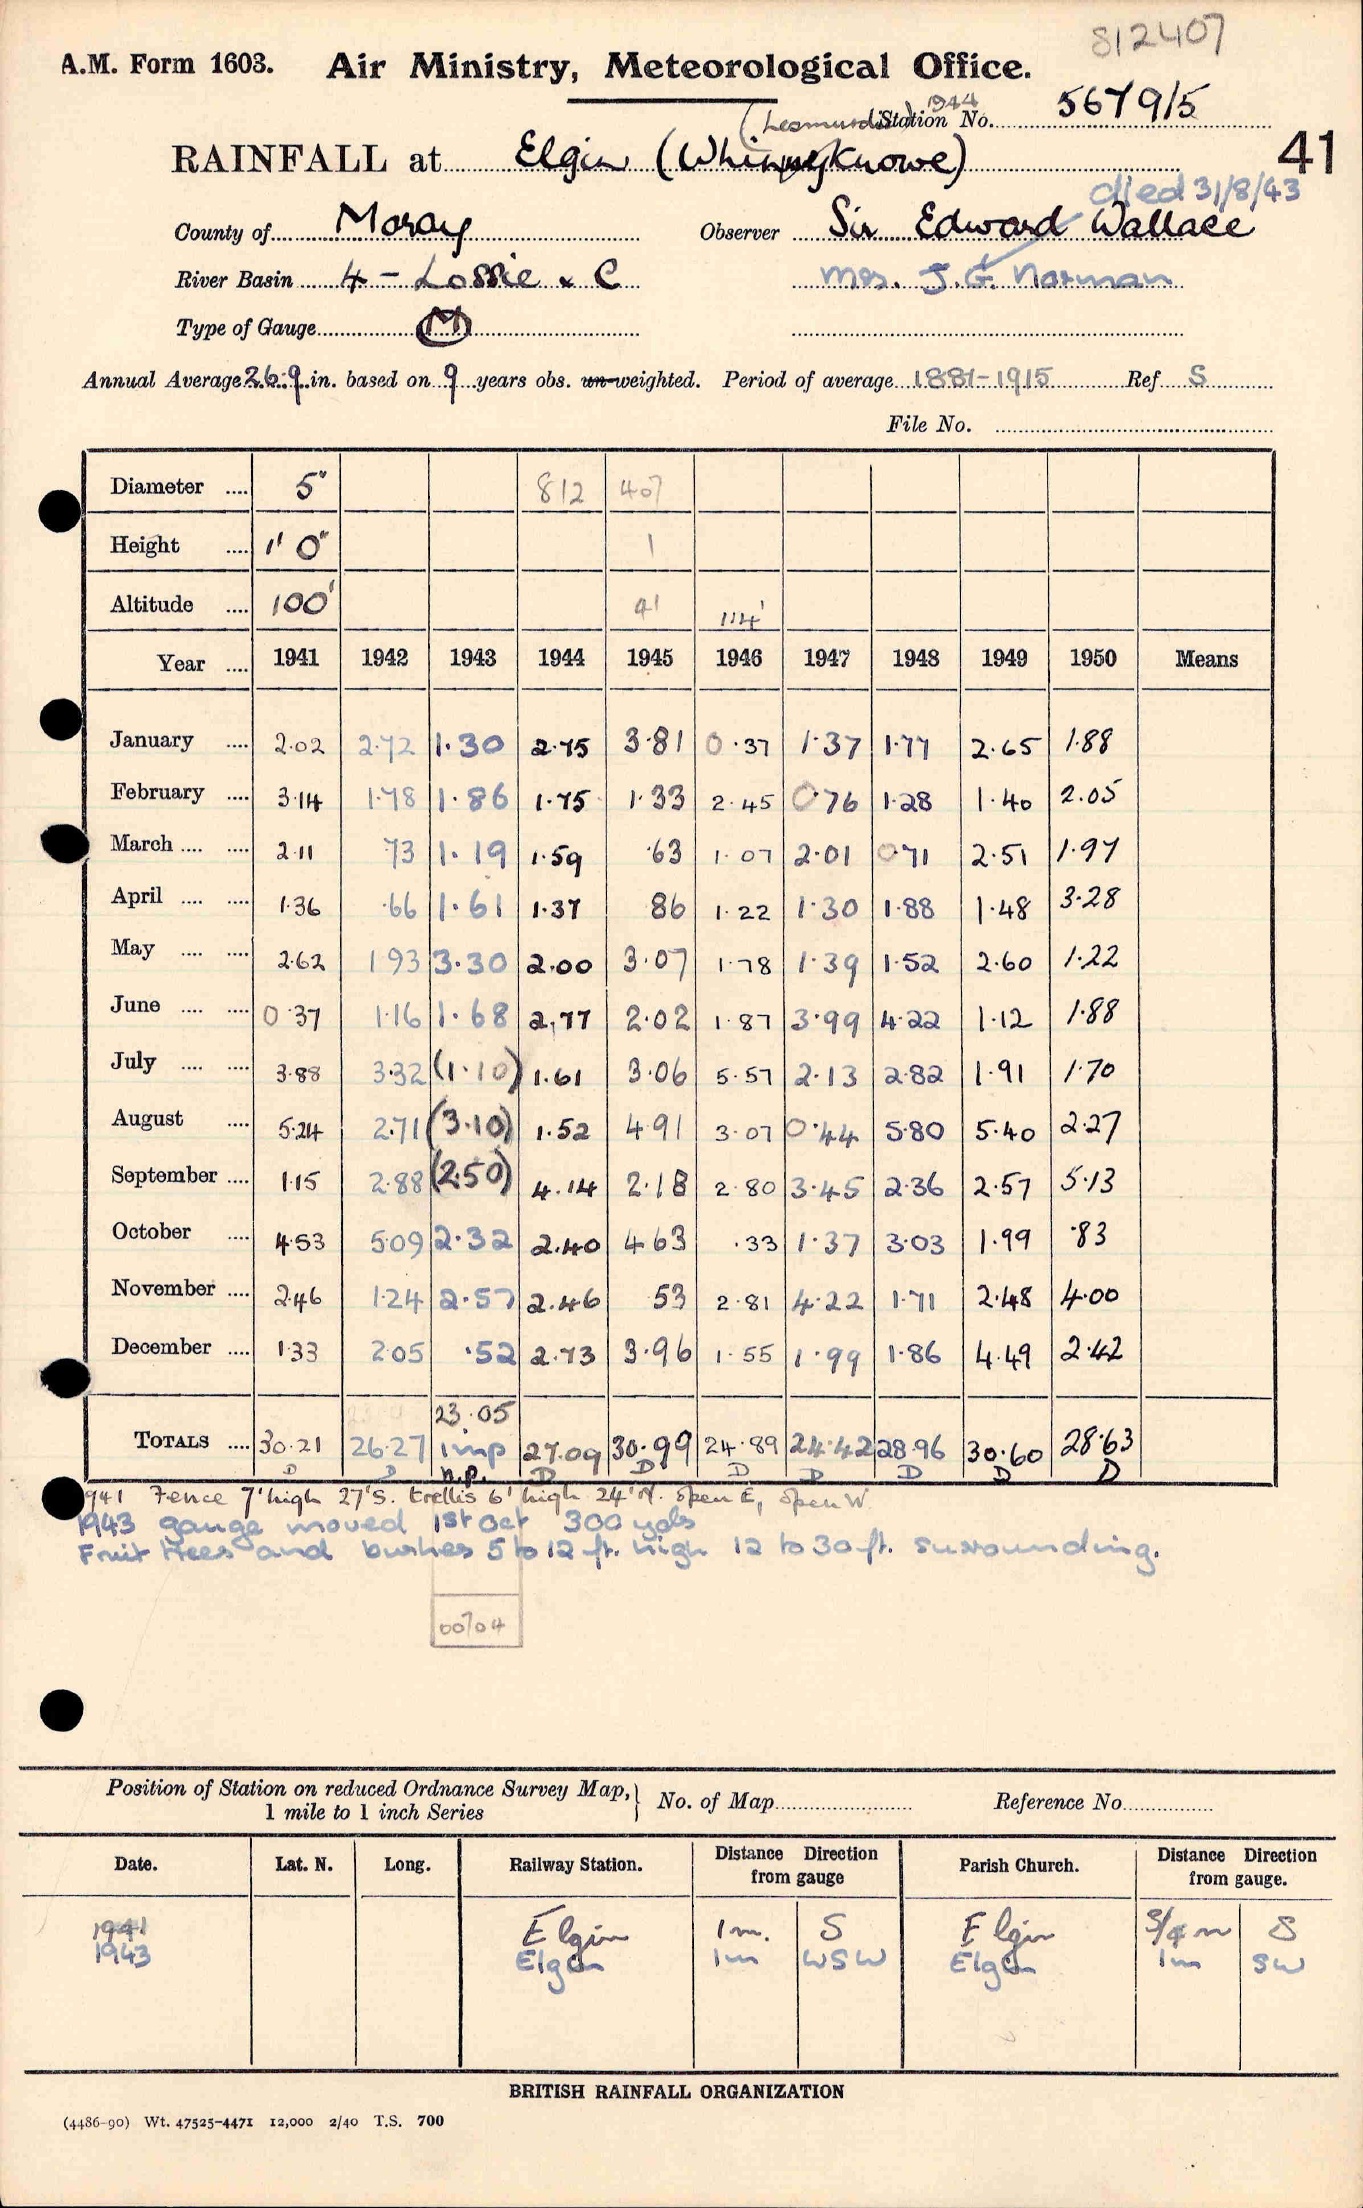 812407
A.M. Form 1603. Air Ministry, Meteorological Office.
1944
Station No. 5679/5
RAINFALL at Elgin (Whinnyknowe) 41
died 31/8/43
County of Moray Observer Sir Edward Wallace
River Basin 4 - Lossie & C Mrs. J.G. Norman
Type of Gauge M
Annual Average 26.9 in. based on 9 years obs. un-weighted. Period of average 1881-1915 Ref S
File No.
Diameter .... 5" 812 407
Height .... 1' 0" 1
Altitude .... 100' 41 114'
Year .... 1941 1942 1943 1944 1945 1946 1947 1948 1949 1950 Means
January .... 2.02 2.72 1.30 2.75 3.81 0.37 1.37 1.77 2.65 1.88
February .... 3.14 1.78 1.86 1.75 1.33 2.45 0.76 1.28 1.40 2.05
March .... .... 2.11 73 1.19 1.59 .63 1.07 2.01 0.71 2.51 1.97
April .... .... 1.36 .66 1.61 1.37 86 1.22 1.30 1.88 1.48 3.28
May .... .... 2.62 1.93 3.30 2.00 3.07 1.78 1.39 1.52 2.60 1.22
June .... .... 0.37 1.16 1.68 2.77 2.02 1.87 3.99 4.22 1.12 1.88
July .... .... 3.88 3.32 (1.10) 1.61 3.06 5.57 2.13 2.82 1.91 1.70
August .... 5.24 2.71 (3.10) 1.52 4.91 3.07 0.44 5.80 5.40 2.27
September .... 1.15 2.88 (2.50) 4.14 2.18 2.80 3.45 2.36 2.57 5.13
October .... 4.53 5.09 2.32 2.40 4.63 .33 1.37 3.03 1.99 .83
November .... 2.46 1.24 2.57 2.46 53 2.81 4.22 1.71 2.48 4.00
December .... 1.33 2.05 .52 2.73 3.96 1.55 1.99 1.86 4.49 2.42
23.05
TOTALS .... 30.21 26.27 imp 27.09 30.99 24.89 24.42 28.96 30.60 28.63
D D n.p. D D D D D D D
1941 Fence 7' high 27' S. Trellis 6' high 24' N. open E, open W
1943 gauge moved 1st Oct 300 yds
Fruit trees and bushes 5 to 12 ft. high 12 to 30 ft. surrounding.
00704
Position of Station on reduced Ordnance Survey Map, } No. of Map Reference No
1 mile to 1 inch Series
Date. Lat. N. Long. Railway Station. Distance Direction from gauge Parish Church. Distance Direction from gauge.
1941 Elgin 1m. S Elgin 3/4 m S
1943 Elgin 1m WSW Elgin 1m SW
BRITISH RAINFALL ORGANIZATION
(4486-90) Wt. 47525-4471 12,000 2/40 T.S. 700